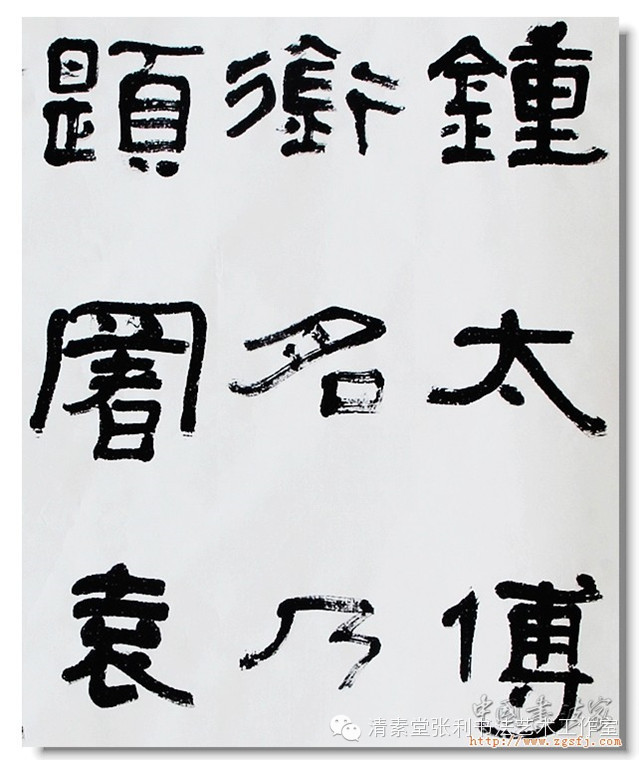 鍾太傅
銜名乃
題署袁
中国书法家
清素堂张利书法艺术工作室
http://www.zgsfj.com